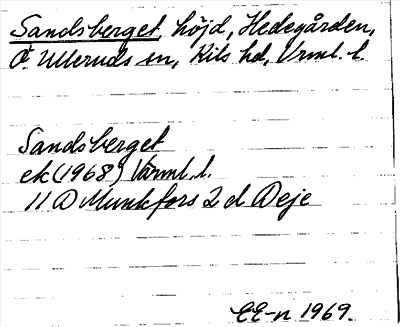 Sandsberget, höjd, Hedegården,
Ö. Ulleruds sn, Kils hd, Vrml. l.
Sandsberget
ek (1968) Värml. l.
11 D Munkfors 2 d Deje
EE-n 1969.